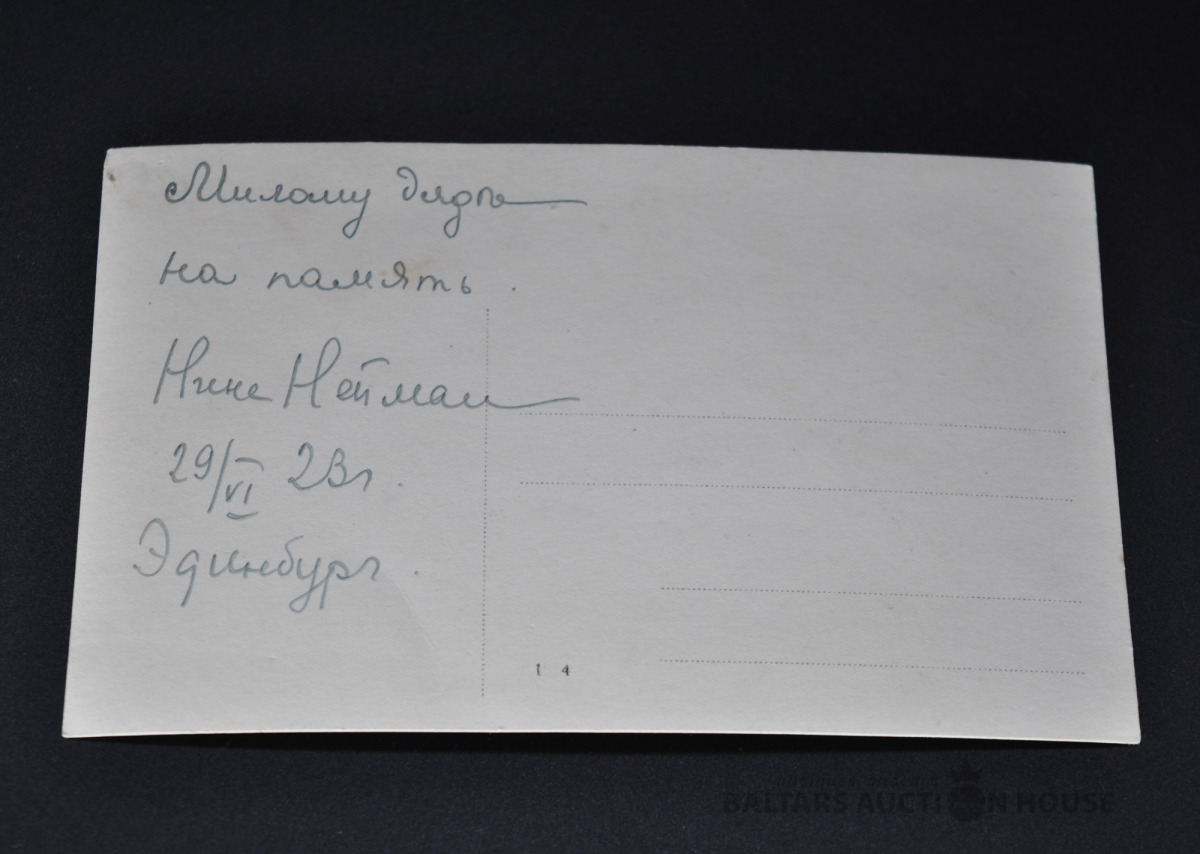 Милому дядѣ
на память.
Нине Нейман
29/VI 23г.
Эдинбург.
1 4
BALTARS AUCTION HOUSE